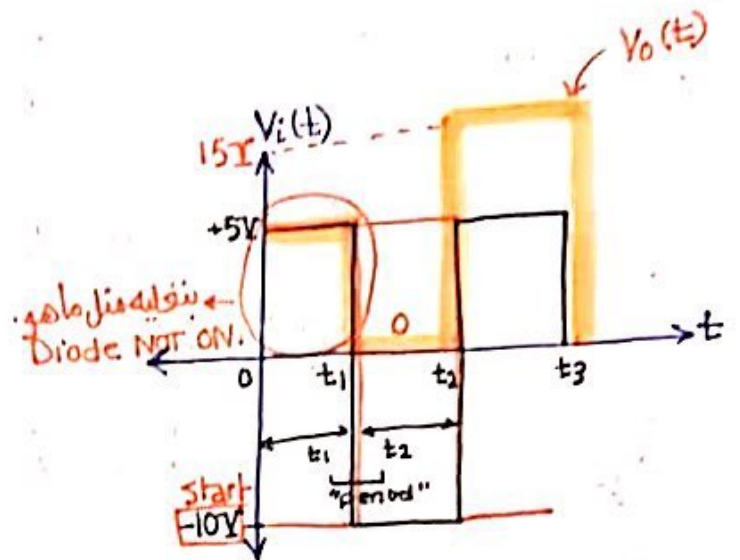 V₀(t)
Vi(t)
15V
+5V
بنخليه مثل ما هو.
Diode NOT ON.
0
t
0
t₁
t₂
t₃
t₁
t₂
"period"
start
-10V